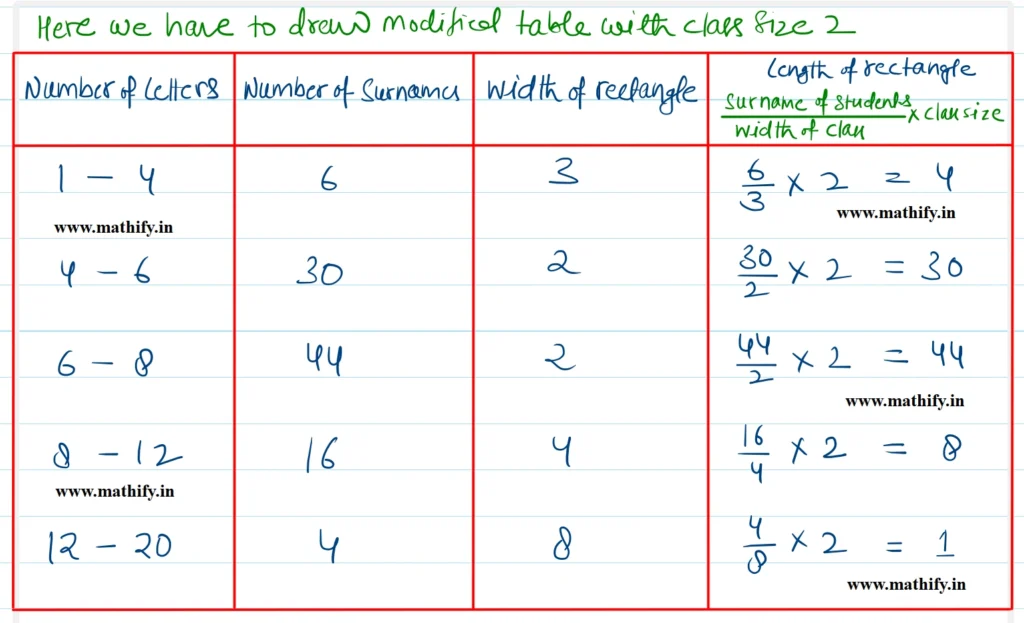 Here we have to draw modified table with class size 2
Number of letters
Number of Surnames
Width of rectangle
Length of rectangle
Surname of students
width of class
× class size
1 – 4
6
3
6/3 × 2 = 4
www.mathify.in
www.mathify.in
4 – 6
30
2
30/2 × 2 = 30
6 – 8
44
2
44/2 × 2 = 44
www.mathify.in
8 – 12
16
4
16/4 × 2 = 8
www.mathify.in
12 – 20
4
8
4/8 × 2 = 1
www.mathify.in